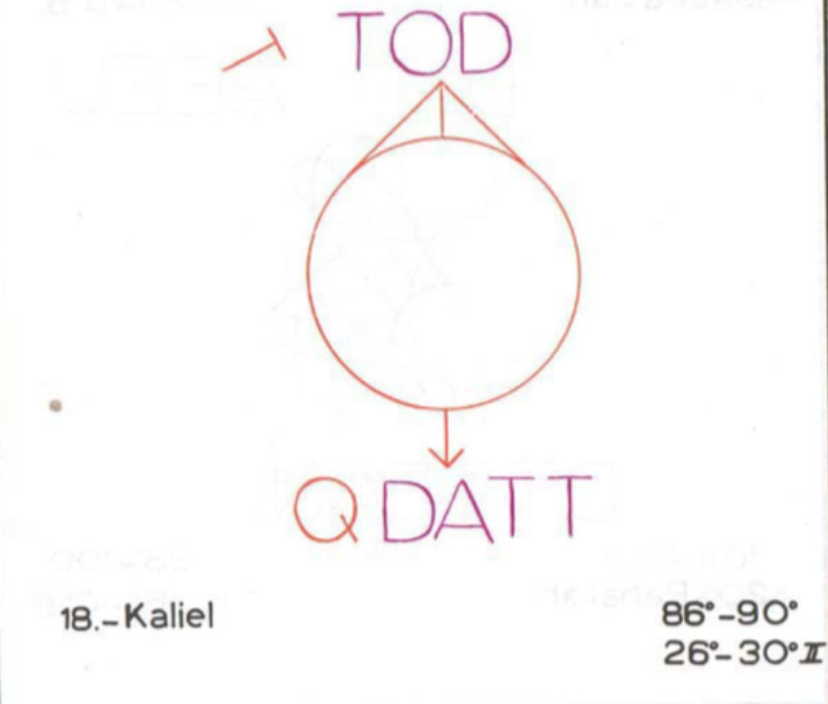 TOD
QDATT
18.-Kaliel
86°-90°
26°-30°♊